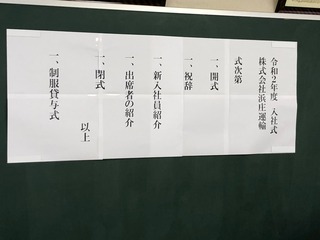 令和2年度　入社式
株式会社浜庄運輸
式次第
一、開式
一、祝辞
一、新入社員紹介
一、出席者の紹介
一、閉式
以上
一、制服貸与式